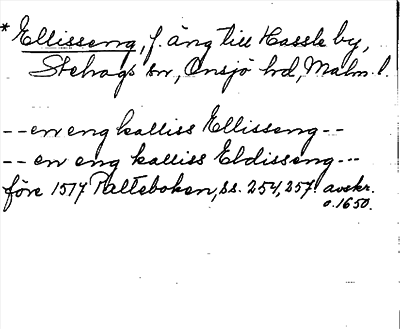 * Ellisseng, f. äng till Hassle by,
Stehags sn, Onsjö hd, Malm. l.
-- en eng kalliss Ellisseng --
-- en eng kalliss Eldisseng ---
före 1517 Palteboken, ss. 254, 257. avskr.
o. 1650.